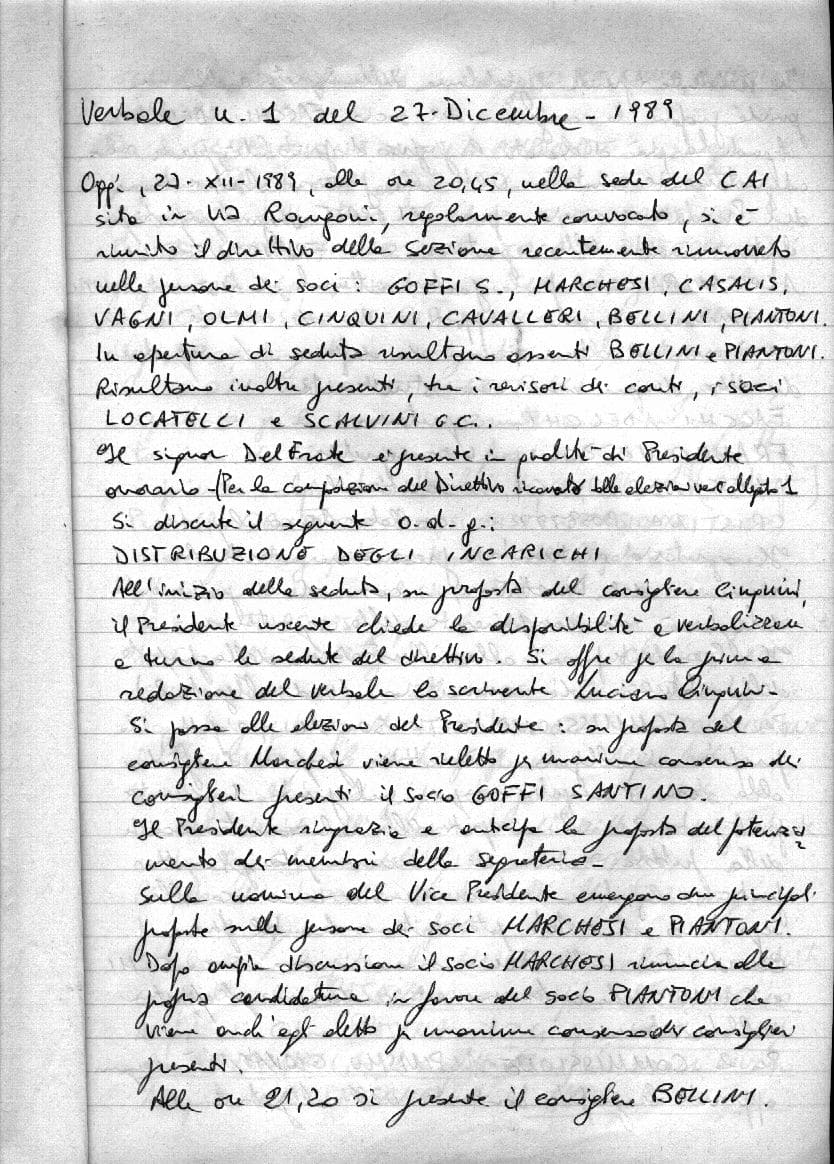 Verbale n. 1 del 27 Dicembre - 1989
Oggi, 27-XII-1989, alle ore 20,45, nella sede del CAI
sita in via Rangoni, regolarmente convocato, si è
riunito il direttivo della sezione recentemente rinnovato
nelle persone dei soci: GOFFI S., MARCHESI, CASALIS,
VAGNI, OLMI, CINQUINI, CAVALLERI, BELLINI, PIANTONI.
In apertura di seduta risultano assenti BELLINI e PIANTONI.
Risultano inoltre presenti, tra i revisori dei conti, i soci
LOCATELLI e SCALVINI G.C.
Il signor Del Frate è presente in qualità di Presidente
onorario - (Per la composizione del Direttivo dalle elezioni vedi allegato 1
Si discute il seguente o.d.g.:
DISTRIBUZIONE DEGLI INCARICHI
All'inizio della seduta, su proposta del consigliere Cinquini,
il Presidente uscente chiede la disponibilità a verbalizzare
a turno le sedute del direttivo. Si offre per la prima
redazione del verbale lo scrivente Luciano Cinquini -
Si passa alla elezione del Presidente: su proposta del
consigliere Marchesi viene rieletto per unanime consenso dei
consiglieri presenti il socio GOFFI SANTINO.
Il Presidente ringrazia e anticipa la proposta del potenzia
mento dei membri della segreteria -
Sulla nomina del Vice Presidente emergono due principali
proposte sulle persone dei soci MARCHESI e PIANTONI.
Dopo ampia discussione il socio MARCHESI rinuncia alla
propria candidatura in favore del socio PIANTONI che
viene anch'egli eletto per unanime consenso dei consiglieri
presenti.
Alle ore 21,20 si presenta il consigliere BELLINI.